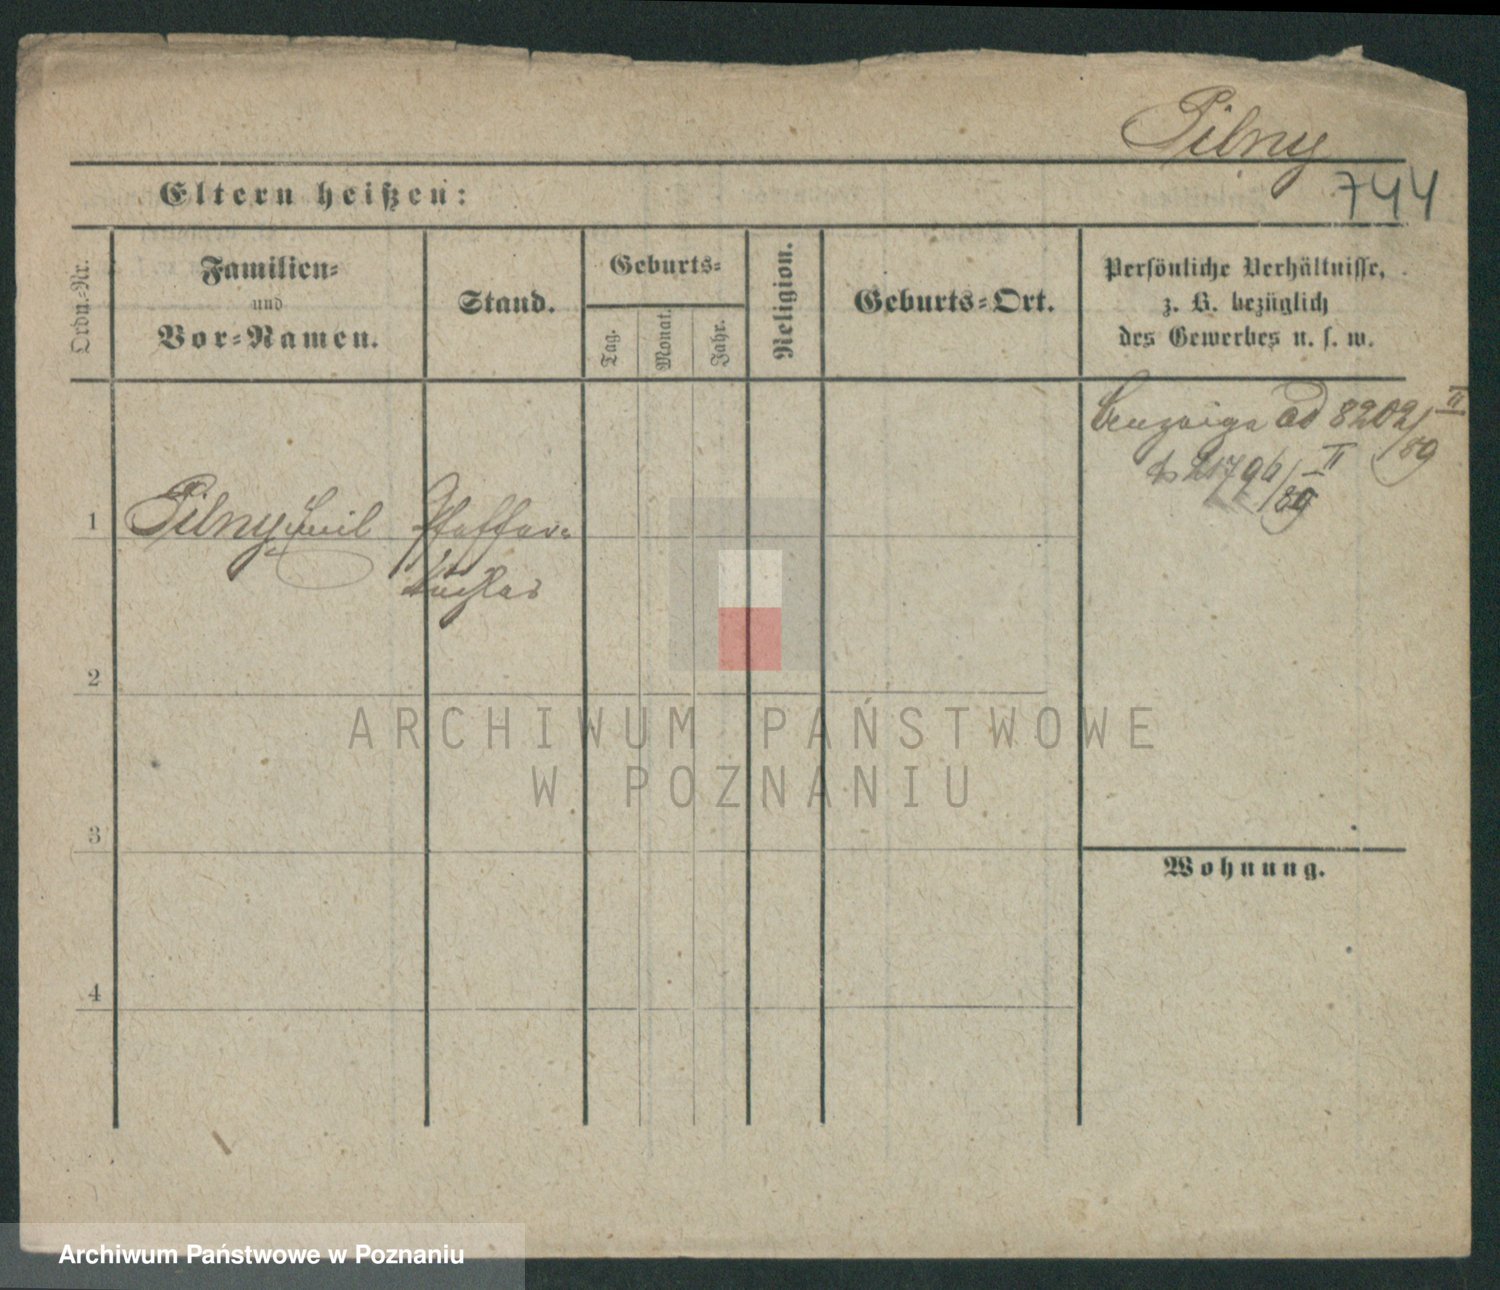 Pilny
744
Eltern heißen:
Ordn.-Nr.
Familien-
und
Vor-Namen.
Stand.
Geburts-
Tag.
Monat.
Jahr.
Religion.
Geburts-Ort.
Persönliche Verhältnisse,
z. B. bezüglich
des Gewerbes u. s. w.
ad 8202/II 89
1 Pilny Emil Pfeffer-
küchler
2
3
4
Wohnung.
ARCHIWUM PAŃSTWOWE
W POZNANIU
Archiwum Państwowe w Poznaniu